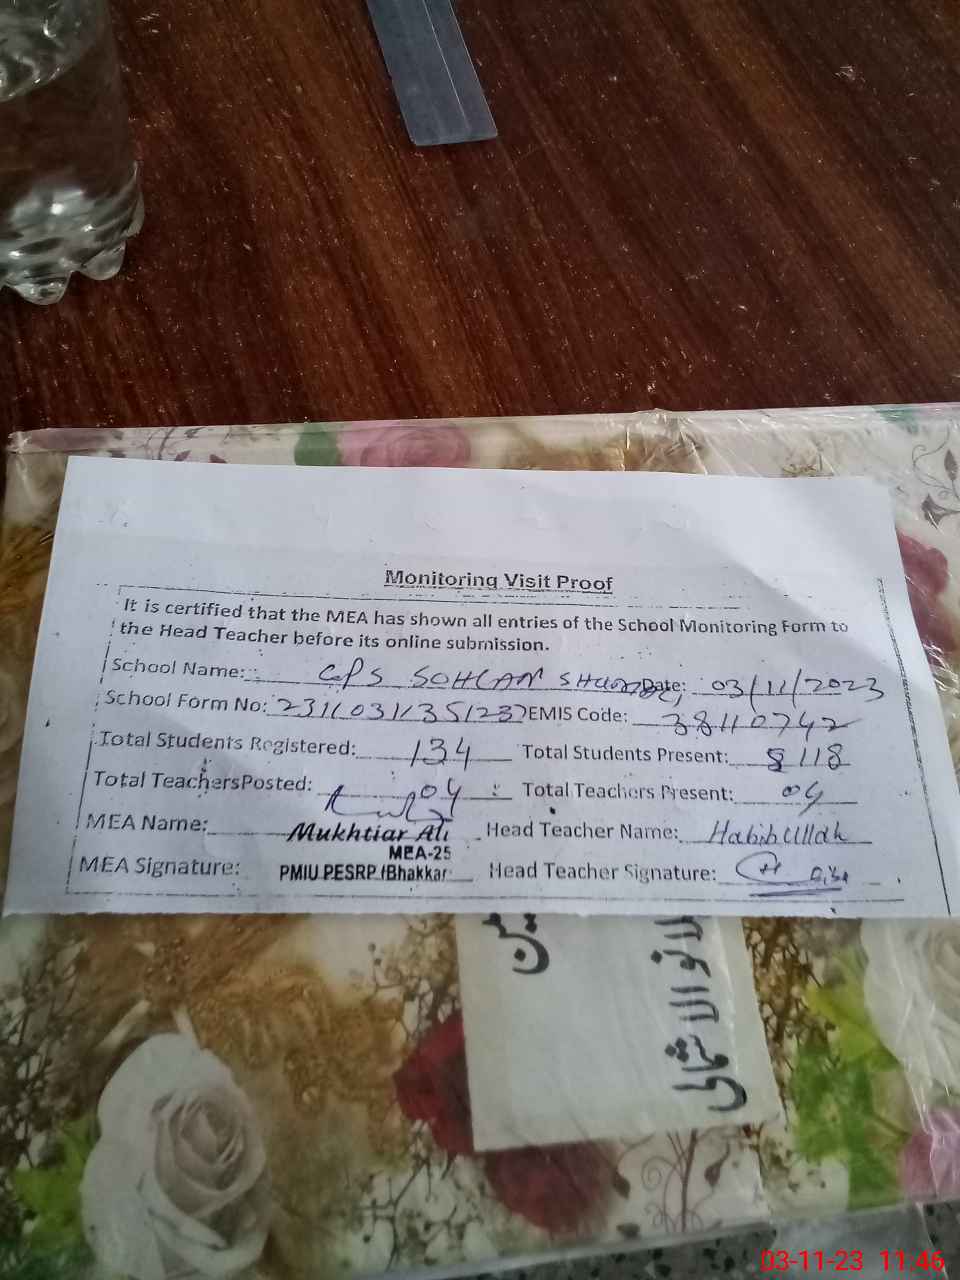 Monitoring Visit Proof
It is certified that the MEA has shown all entries of the School Monitoring Form to
the Head Teacher before its online submission.
School Name: GPS SOHLAN Date: 03/11/2023
School Form No: EMIS Code: 38110742
Total Students Registered: 134 Total Students Present: 118
Total TeachersPosted: 04 Total Teachers Present: 04
MEA Name: Mukhtiar Ali Head Teacher Name: Habib Ullah
MEA-25
MEA Signature: PMIU PESRP (Bhakkar Head Teacher Signature:
03-11-23 11:46